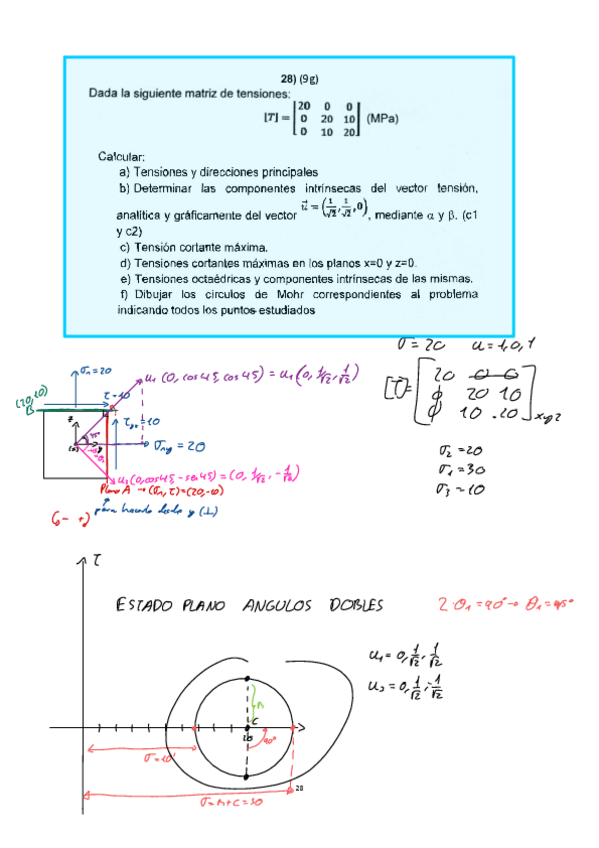 28) (9g)
Dada la siguiente matriz de tensiones:
[T] = |20 0 0
0 20 10
0 10 20| (MPa)
Calcular:
a) Tensiones y direcciones principales
b) Determinar las componentes intrínsecas del vector tensión,
analítica y gráficamente del vector u⃗ = (1/√2, 1/√2, 0), mediante α y β. (c1
y c2)
c) Tensión cortante máxima.
d) Tensiones cortantes máximas en los planos x=0 y z=0.
e) Tensiones octaédricas y componentes intrínsecas de las mismas.
f) Dibujar los círculos de Mohr correspondientes al problema
indicando todos los puntos estudiados
σ = 20 u = 1,0,1
[T] = [20 0 0
0 20 10
0 10 20]xyz
σ2 = 20
σ1 = 30
σ3 = 10
σn = 20
u1 (0, cos 45, cos 45) = u1 (0, 1/√2, 1/√2)
(20,10)
B
τ = 10
z
45°
y
= 10
= 20
u2 (0, cos 45, -sen 45) = (0, 1/√2, -1/√2)
Plano A → (σn, τ) = (20, -10)
y (⊥)
τ
ESTADO PLANO ANGULOS DOBLES
2·θ1 = 90° → θ1 = 45°
u1 = 0, 1/√2, 1/√2
u2 = 0, 1/√2, -1/√2
R
C
20
90°
σ = 10
28
σ = R + C = 30